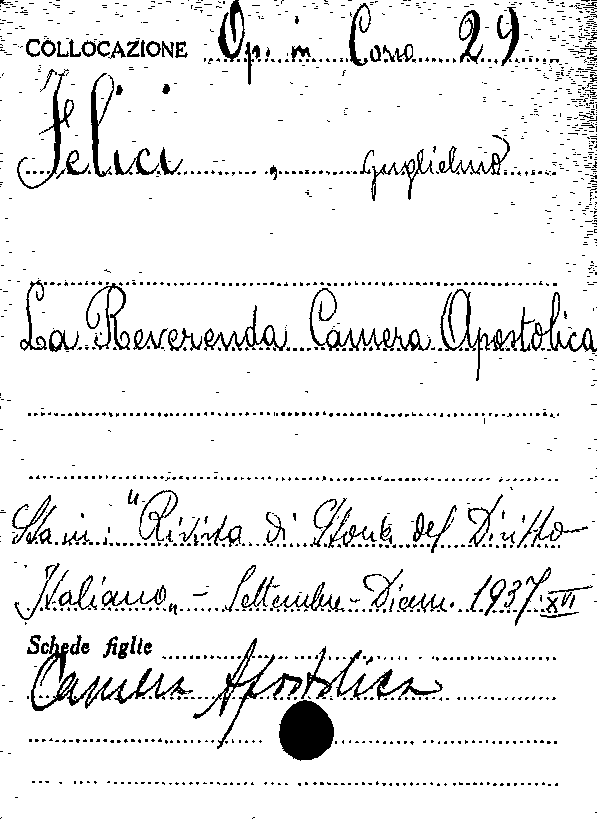 COLLOCAZIONE Op. in Corso 29
Felici, Guglielmo
La Reverenda Camera Apostolica
Sta in: "Rivista di Storia del Diritto
Italiano" - Settembre - Dicem. 1937. XVI
Schede figlie
Camera Apostolica